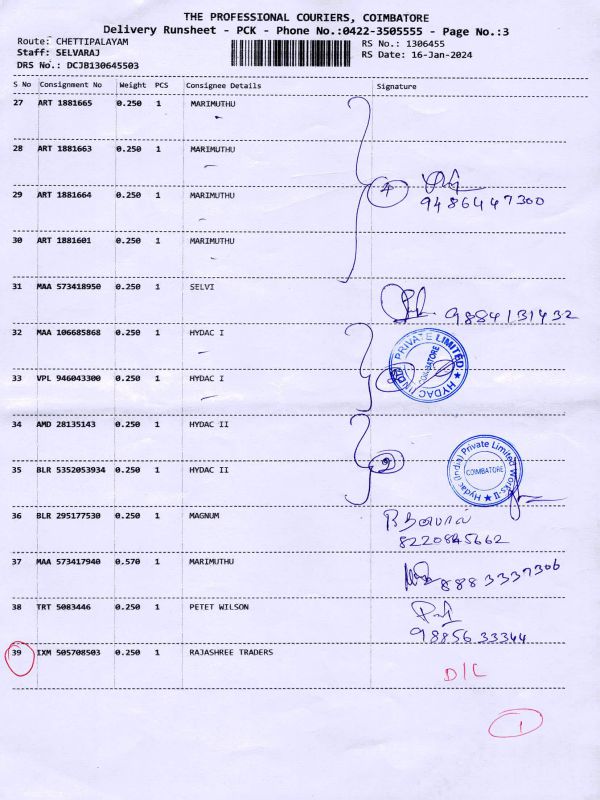 THE PROFESSIONAL COURIERS, COIMBATORE
Delivery Runsheet - PCK - Phone No.:0422-3505555 - Page No.:3
Route: CHETTIPALAYAM RS No.: 1306455
Staff: SELVARAJ RS Date: 16-Jan-2024
DRS No.: DCJB130645503
S No Consignment No Weight PCS Consignee Details Signature
27 ART 1881665 0.250 1 MARIMUTHU
28 ART 1881663 0.250 1 MARIMUTHU
4
9486447300
29 ART 1881664 0.250 1 MARIMUTHU
30 ART 1881601 0.250 1 MARIMUTHU
31 MAA 573418950 0.250 1 SELVI
9884131432
32 MAA 106685868 0.250 1 HYDAC I
HYDAC (INDIA) PRIVATE LIMITED
COIMBATORE
33 VPL 946043300 0.250 1 HYDAC I
34 AMD 28135143 0.250 1 HYDAC II
35 BLR 5352053934 0.250 1 HYDAC II
2
Hydac (India) Private Limited Works-II
COIMBATORE
36 BLR 295177530 0.250 1 MAGNUM
8220845662
37 MAA 573417940 0.570 1 MARIMUTHU
8883337306
38 TRT 5083446 0.250 1 PETET WILSON
9885633344
39 IXM 505708503 0.250 1 RAJASHREE TRADERS
D/C
1